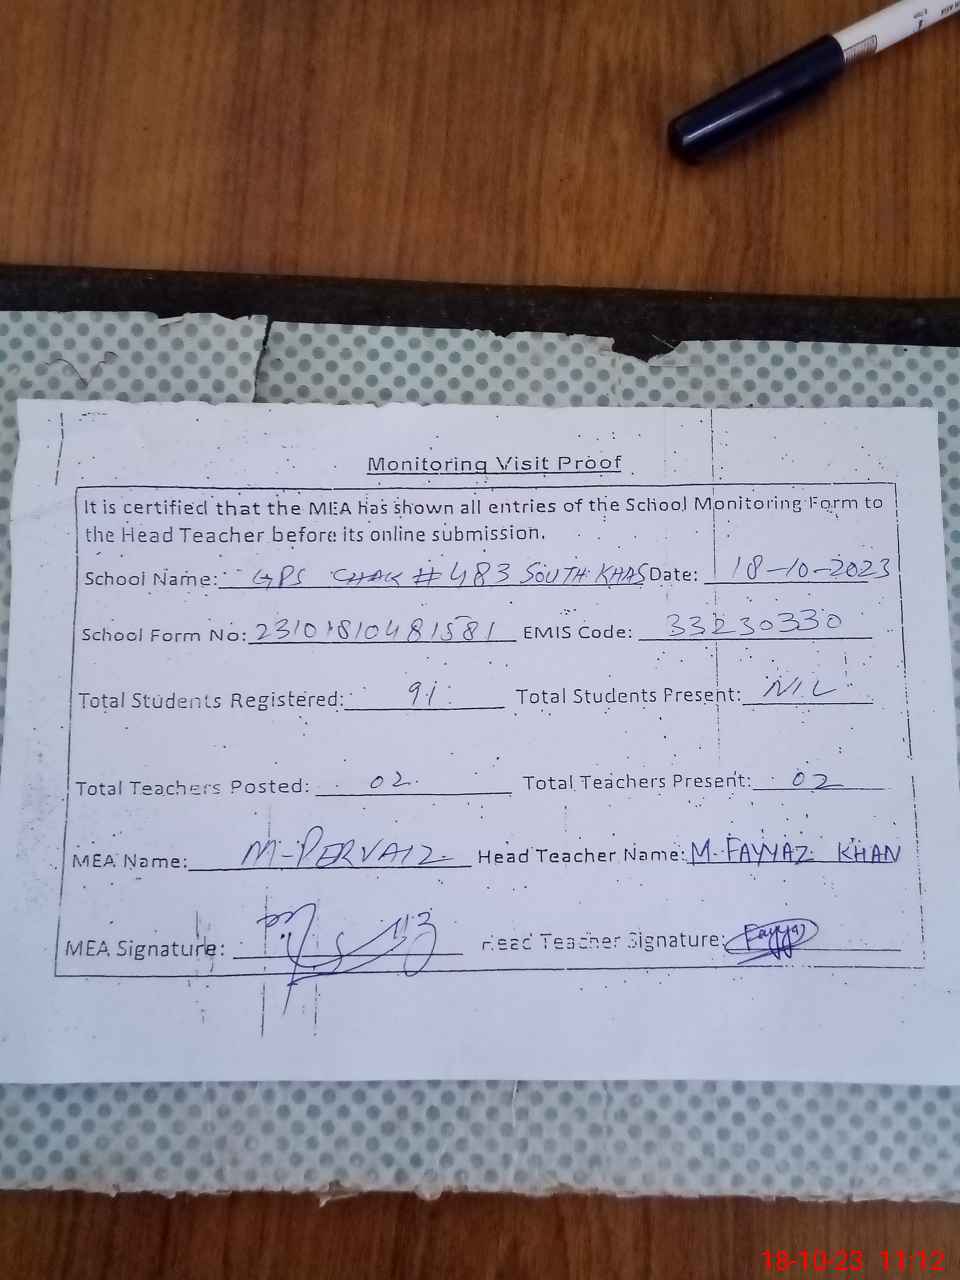 Monitoring Visit Proof
It is certified that the MEA has shown all entries of the School Monitoring Form to
the Head Teacher before its online submission.
School Name: GPS CHAK # 483 SOUTH KHAS Date: 18-10-2023
School Form No: 23101810481581 EMIS Code: 33230330
Total Students Registered: 91 Total Students Present: NIL
Total Teachers Posted: 02 Total Teachers Present: 02
MEA Name: M-PERVAIZ Head Teacher Name: M. FAYYAZ KHAN
MEA Signature: Head Teacher Signature: Fayyaz
18-10-23 11:12